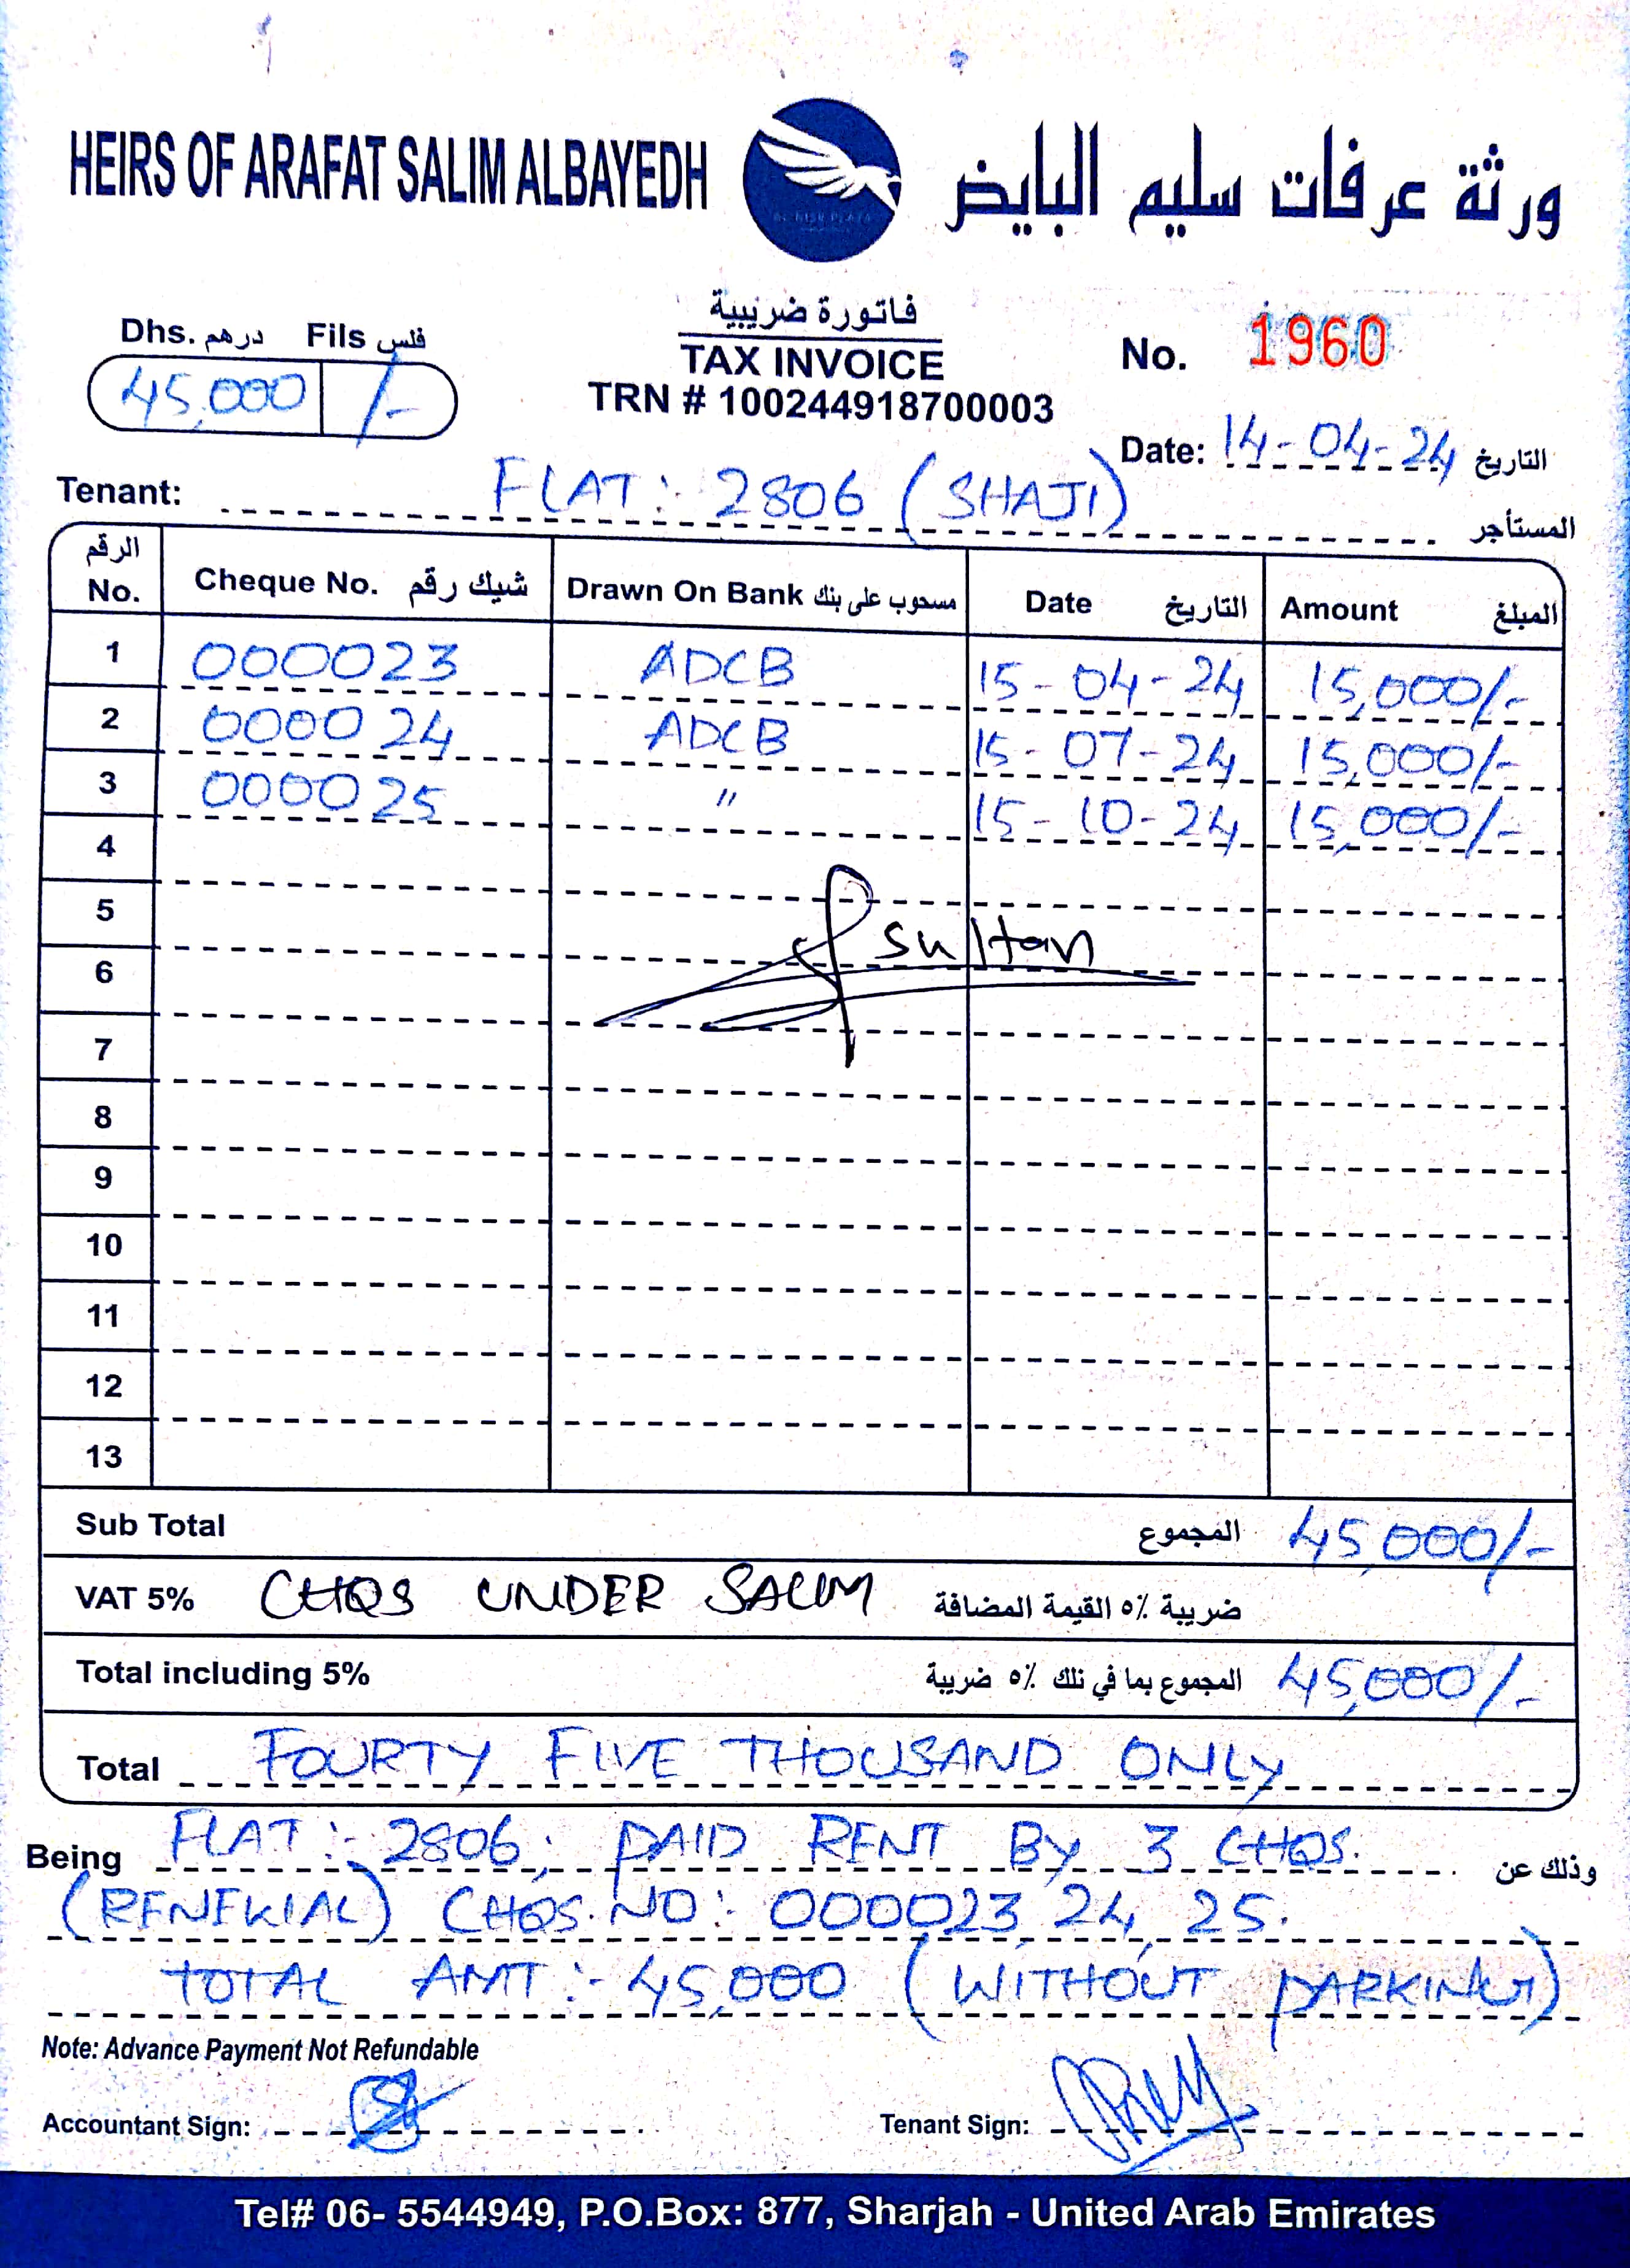 HEIRS OF ARAFAT SALIM ALBAYEDH ورثة عرفات سليم البايض
Dhs. درهم Fils فلس
45,000 /-
فاتورة ضريبية
TAX INVOICE
TRN # 100244918700003
No. 1960
Date: 14-04-24 التاريخ
Tenant: FLAT: 2806 (SHAJI) المستأجر
الرقم No. Cheque No. شيك رقم Drawn On Bank مسحوب على بنك Date التاريخ Amount المبلغ
1 000023 ADCB 15-04-24 15,000/-
2 000024 ADCB 15-07-24 15,000/-
3 000025 " 15-10-24 15,000/-
4
5
sultan
6
7
8
9
10
11
12
13
Sub Total المجموع 45,000/-
VAT 5% CHQS UNDER SALIM ضريبة ٥٪ القيمة المضافة
Total including 5% المجموع بما في ذلك ٥٪ ضريبة 45,000/-
Total FOURTY FIVE THOUSAND ONLY
Being FLAT:- 2806; PAID RENT By 3 CHQS. وذلك عن
(RENEWAL) CHQS.NO: 000023, 24, 25.
TOTAL AMT:- 45,000 (WITHOUT PARKING)
Note: Advance Payment Not Refundable
Accountant Sign: Tenant Sign:
Tel# 06- 5544949, P.O.Box: 877, Sharjah - United Arab Emirates